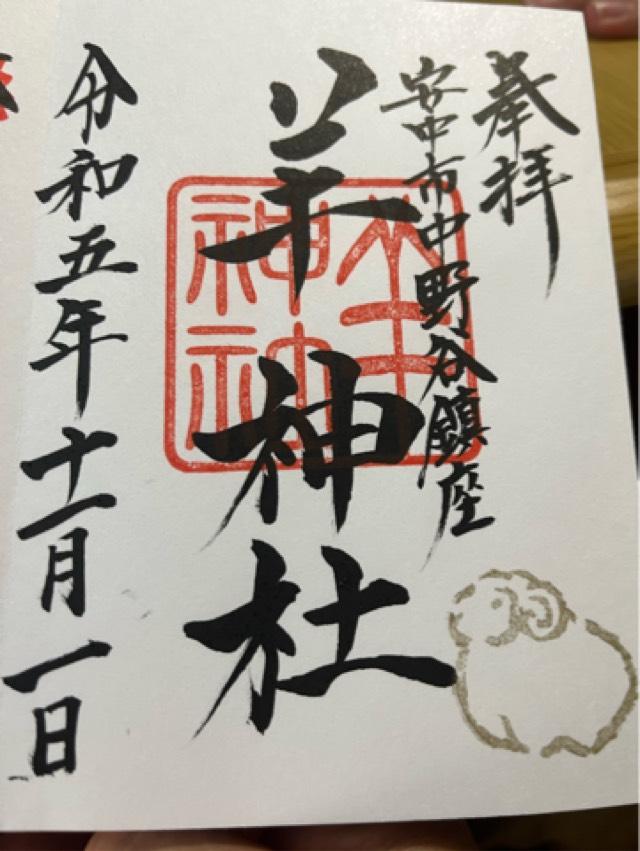 奉拝
安中市中野谷鎮座
羊神社
令和五年十一月一日